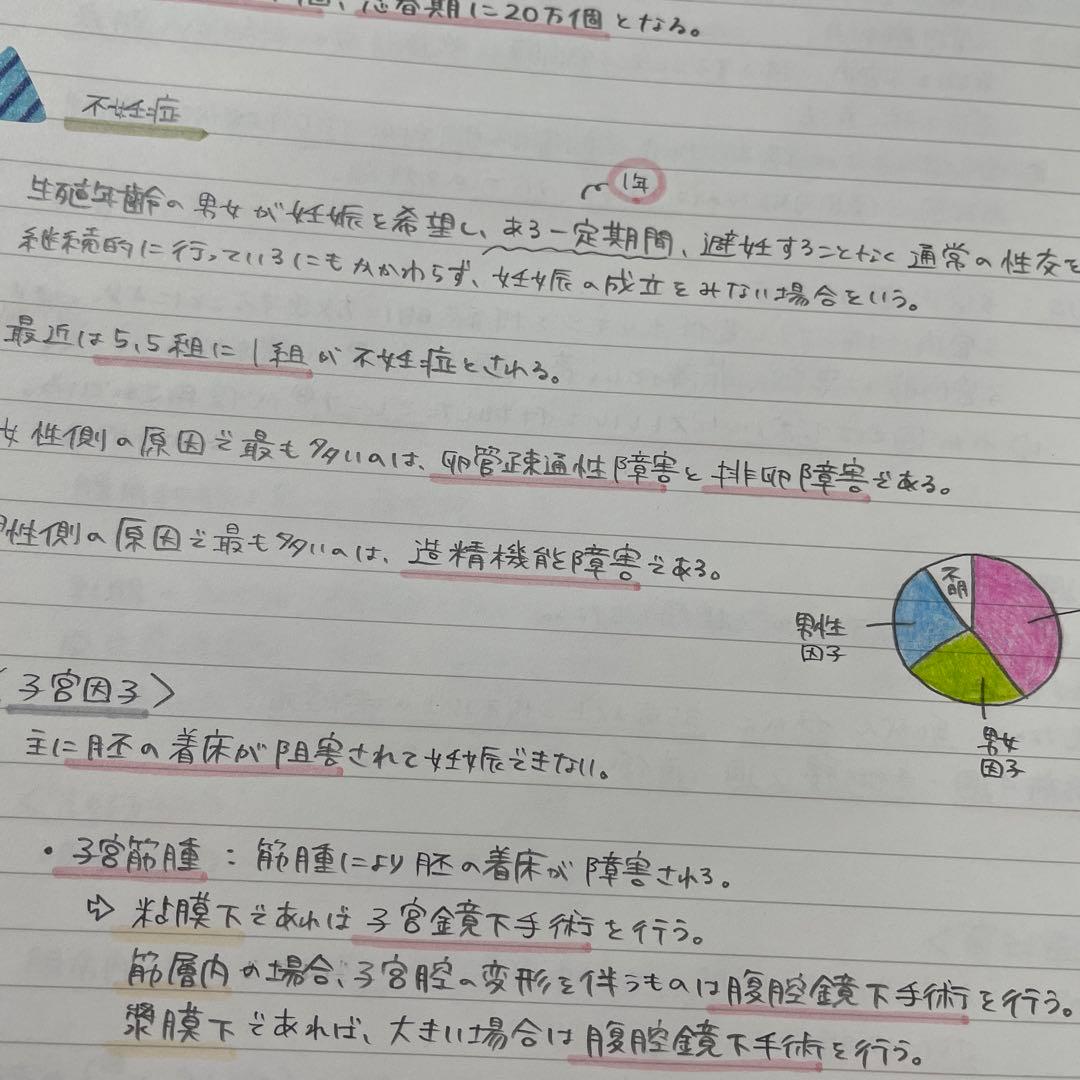 思春期に20万個となる。
不妊症
1年
生殖年齢の男女が妊娠を希望し、ある一定期間、避妊することなく通常の性交を
継続的に行っているにもかかわらず、妊娠の成立をみない場合をいう。
最近は5.5組に1組が不妊症とされる。
女性側の原因で最も多いのは、卵管疎通性障害と排卵障害である。
男性側の原因で最も多いのは、造精機能障害である。
不明
男性
因子
男女
因子
〈子宮因子〉
主に胚の着床が阻害されて妊娠できない。
・子宮筋腫：筋腫により胚の着床が障害される。
⇨ 粘膜下であれば子宮鏡下手術を行う。
筋層内の場合、子宮腔の変形を伴うものは腹腔鏡下手術を行う。
漿膜下であれば、大きい場合は腹腔鏡下手術を行う。